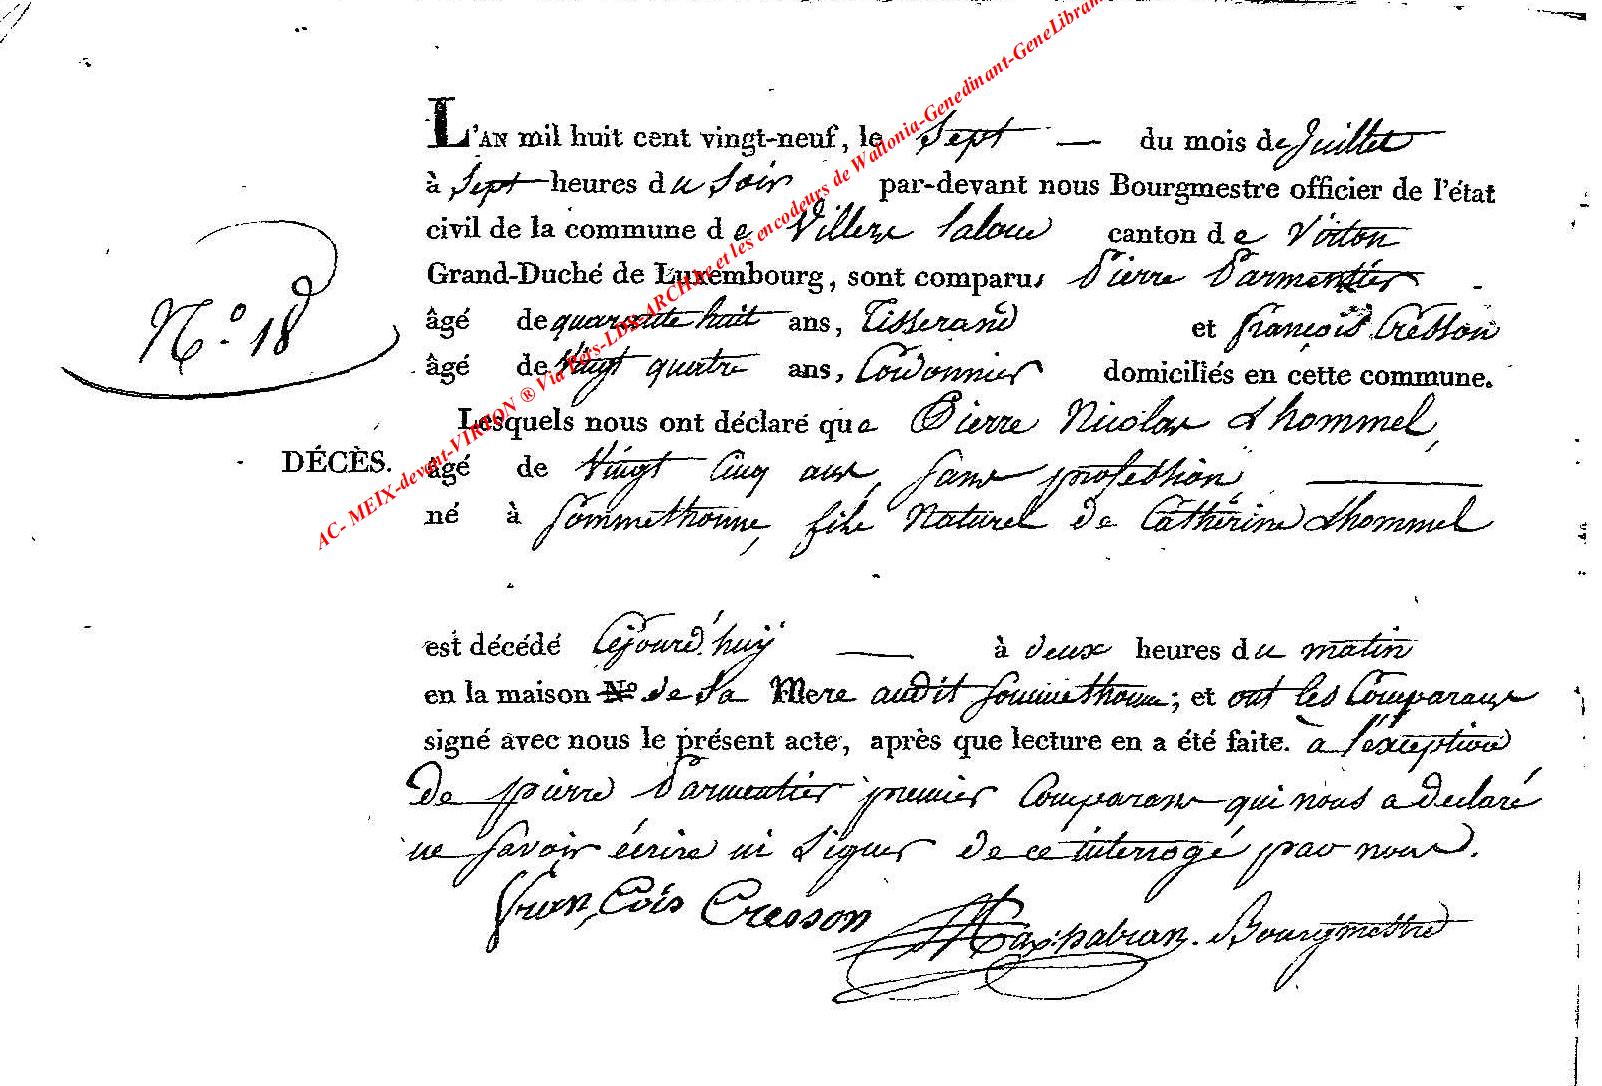 AC- MEIX-devant-VIRTON ® Via Pers-LDS-ARCH.be et les encodeurs de Wallonia-Genedinant-GeneLibram
L'AN mil huit cent vingt-neuf, le Sept — du mois de Juillet
à Sept heures du Soir par-devant nous Bourgmestre officier de l'état
civil de la commune de Villers laloue canton de Virton
Grand-Duché de Luxembourg, sont comparus Pierre Parmentier
N.º 18
âgé de quarante huit ans, Tisserand et françois Cresson
âgé de Vingt quatre ans, Cordonnier domiciliés en cette commune.
Lesquels nous ont déclaré que Pierre Nicolas Lhommel,
DÉCÈS.
âgé de Vingt Cinq ans, sans profession
né à Sommethonne, fils Naturel de Cathérine Lhommel
est décédé Cejourd'huy — à deux heures du matin
en la maison Nº de Sa Mere audit Sommethonne; et ont les Comparans
signé avec nous le présent acte, après que lecture en a été faite. à l'éxception
De pierre Parmentier premier Comparans qui nous a declaré
ne savoir écrire ni Signer de ce interrogé par nous.
François Cresson
Bourgmestre